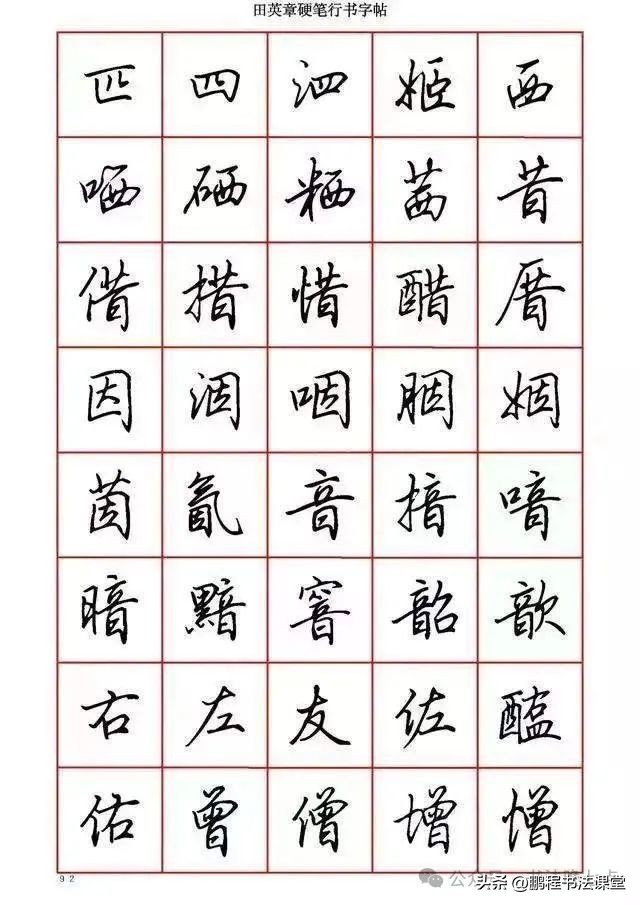 田英章硬笔行书字帖
匹 四 泗 姬 西
哂 硒 粞 茜 昔
借 措 惜 醋 厝
因 洇 咽 胭 姻
茵 氤 音 揞 喑
暗 黯 窨 韶 歆
右 左 友 佐 醢
佑 曾 僧 增 憎
92
头条 @鹏程书法课堂